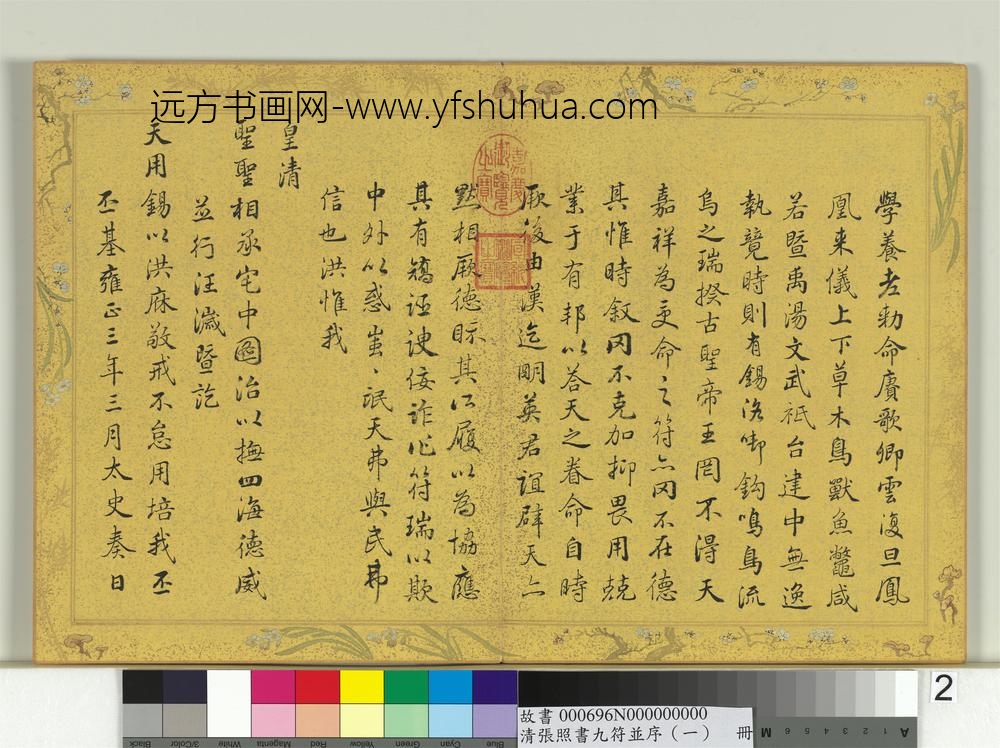 远方书画网-www.yfshuhua.com
學養老勅命賡歌卿雲復旦鳳
凰来儀上下草木鳥獸魚鼈咸
若暨禹湯文武祗台建中無逸
執競時則有錫洛啣鈎鳴鳥流
烏之瑞揆古聖帝王罔不淂天
嘉祥為受命之符亦罔不在德
其惟時叙罔不克加抑畏用兢
業于有邦以荅天之眷命自時
厥後由漢迄明英君誼辟天亦
黙相厥徳眎其所履以為協應
其有矯誣諛佞詐作符瑞以欺
中外以惑蚩、氓天弗與民弗
信也洪惟我
皇清
聖聖相承宅中圖治以撫四海德威
並行汪濊暨訖
天用錫以洪庥敬戒不怠用培我丕
丕基雍正三年三月太史奏日
嘉慶御覽之寶
2
故書 000696N000000000
清張照書九符並序（一） 冊
Black
3/Color
White
Magenta
Red
Yellow
Green
Cyan
Blue
A 1 2 3 4 5 6 M